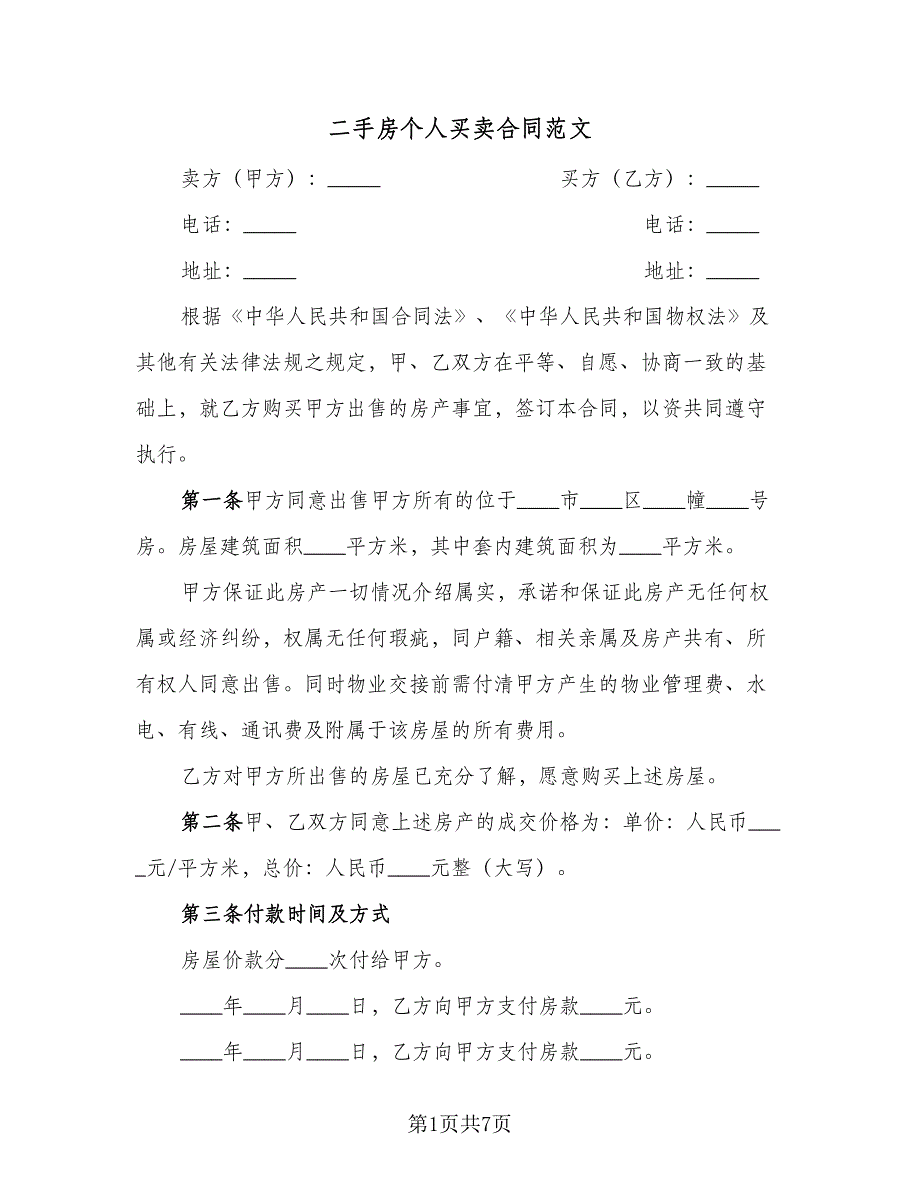 二手房个人买卖合同范文
卖方（甲方）：_____ 买方（乙方）：_____
电话：_____ 电话：_____
地址：_____ 地址：_____
根据《中华人民共和国合同法》、《中华人民共和国物权法》及
其他有关法律法规之规定，甲、乙双方在平等、自愿、协商一致的基
础上，就乙方购买甲方出售的房产事宜，签订本合同，以资共同遵守
执行。
第一条甲方同意出售甲方所有的位于____市____区____幢____号
房。房屋建筑面积____平方米，其中套内建筑面积为____平方米。
甲方保证此房产一切情况介绍属实，承诺和保证此房产无任何权
属或经济纠纷，权属无任何瑕疵，同户籍、相关亲属及房产共有、所
有权人同意出售。同时物业交接前需付清甲方产生的物业管理费、水
电、有线、通讯费及附属于该房屋的所有费用。
乙方对甲方所出售的房屋已充分了解，愿意购买上述房屋。
第二条甲、乙双方同意上述房产的成交价格为：单价：人民币___
_元/平方米，总价：人民币____元整（大写）。
第三条付款时间及方式
房屋价款分____次付给甲方。
____年____月____日，乙方向甲方支付房款____元。
____年____月____日，乙方向甲方支付房款____元。
第1页共7页